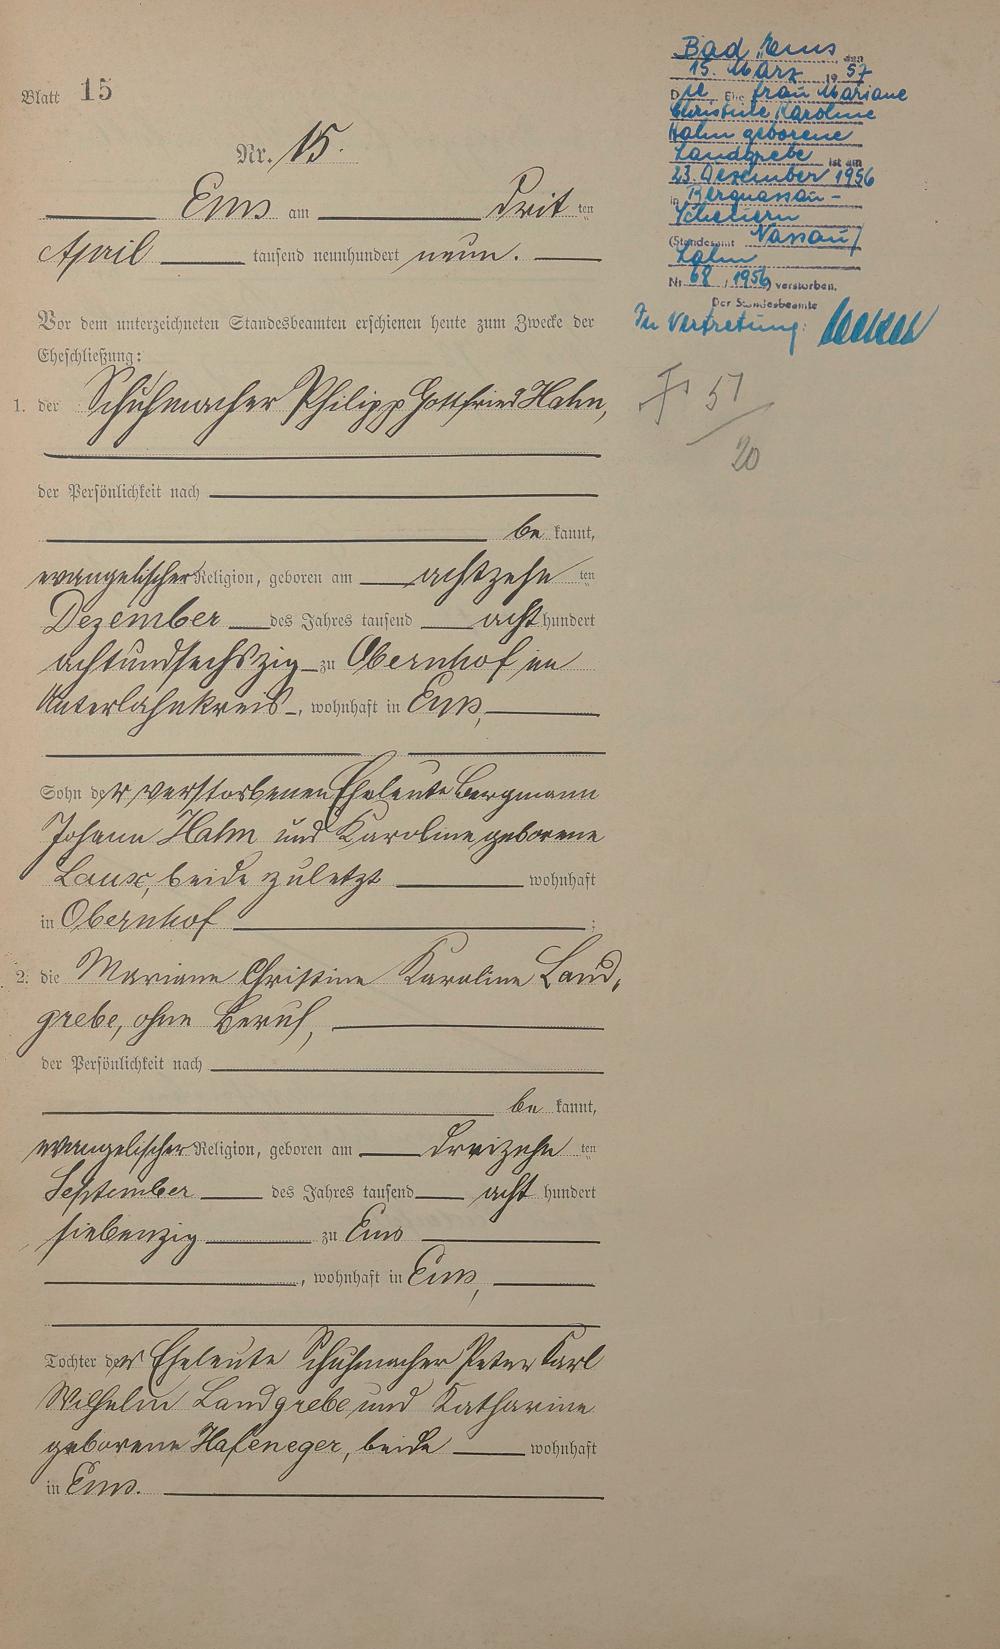 Blatt 15
Nr. 15.
Ems am Drit ten
April tausend neunhundert neun.
Vor dem unterzeichneten Standesbeamten erschienen heute zum Zwecke der
Eheschließung:
1. der Schuhmacher Philipp Gottfried Hahn,
der Persönlichkeit nach
be kannt,
evangelischer Religion, geboren am achtzehn ten
Dezember des Jahres tausend acht hundert
achtundsechszig zu Obernhof im
Unterlahnkreis, wohnhaft in Ems,
Sohn der verstorbenen Eheleute Bergmann
Johann Hahn und Karoline geborene
Laux, beide zuletzt wohnhaft
in Obernhof ;
2. die Mariane Christine Karoline Land,
grebe, ohne Beruf,
der Persönlichkeit nach
be kannt,
evangelischer Religion, geboren am dreizehn ten
September des Jahres tausend acht hundert
siebenzig zu Ems
, wohnhaft in Ems,
Tochter der Eheleute Schuhmacher Peter Karl
Wilhelm Landgrebe und Katharine
geborene Hafeneger, beide wohnhaft
in Ems.
Bad Ems, den
15. März 1957
Die Ehefrau Mariane
Christine Karoline
Hahn geborene
Landgrebe ist am
23. Dezember 1956
in Bergnassau-
Scheuern
(Standesamt Nassau/
Lahn
Nr. 68 / 1956) verstorben.
Der Standesbeamte
In Vertretung:
51
20